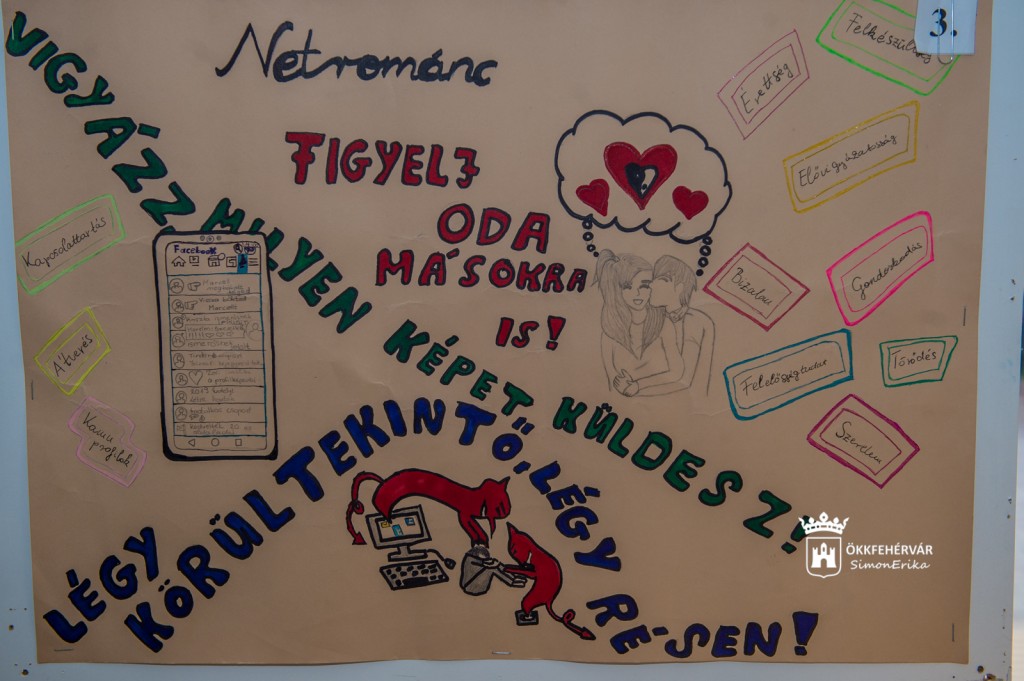 3.
Netrománc
VIGYÁZZ, MILYEN KÉPET KÜLDESZ!
FIGYELJ
ODA
MÁSOKRA
IS!
LÉGY
KÖRÜLTEKINTŐ, LÉGY RÉSEN!
Kapcsolattartás
Átverés
Kamu
profilok
Facebook
Érettség
Elővigyázatosság
Gondoskodás
Bizalom
Felelősségtudat
Törődés
Szerelem
ÖKKFEHÉRVÁR
SimonErika